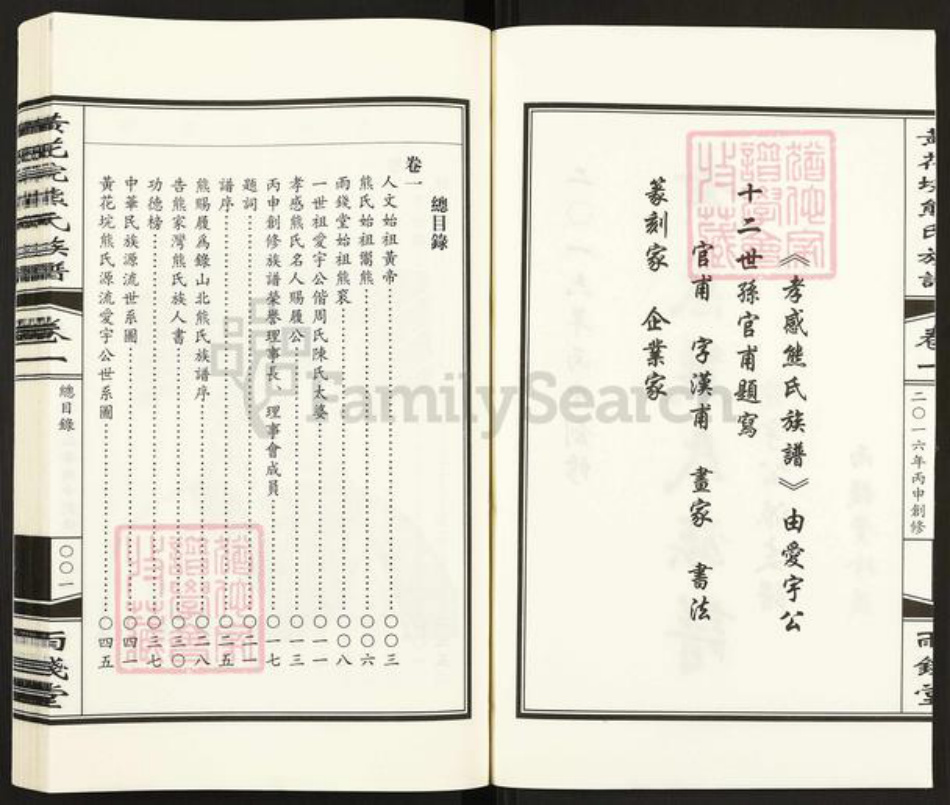 《孝感熊氏族譜》由愛宇公
十二世孫官甫題寫
官甫 字漢甫 畫家 書法
篆刻家 企業家
黃花垸熊氏族譜
卷一
二〇一六年丙申創修
雨錢堂
總目錄
卷一
人文始祖黃帝 〇〇三
熊氏始祖鬻熊 〇〇六
雨錢堂始祖熊袞 〇〇八
一世祖愛宇公偕周氏陳氏太婆 〇一一
孝感熊氏名人賜履公 〇一三
丙申創修族譜榮譽理事長、理事會成員 〇一七
題詞 〇二一
譜序 〇二五
熊賜履爲錄山北熊氏族譜序 〇二八
告熊家灣熊氏族人書 〇三〇
功德榜 〇三七
中華民族源流世系圖 〇四一
黃花垸熊氏源流愛宇公世系圖 〇四五
黃花垸熊氏族譜
卷一
總目錄
〇〇一
雨錢堂
FamilySearch